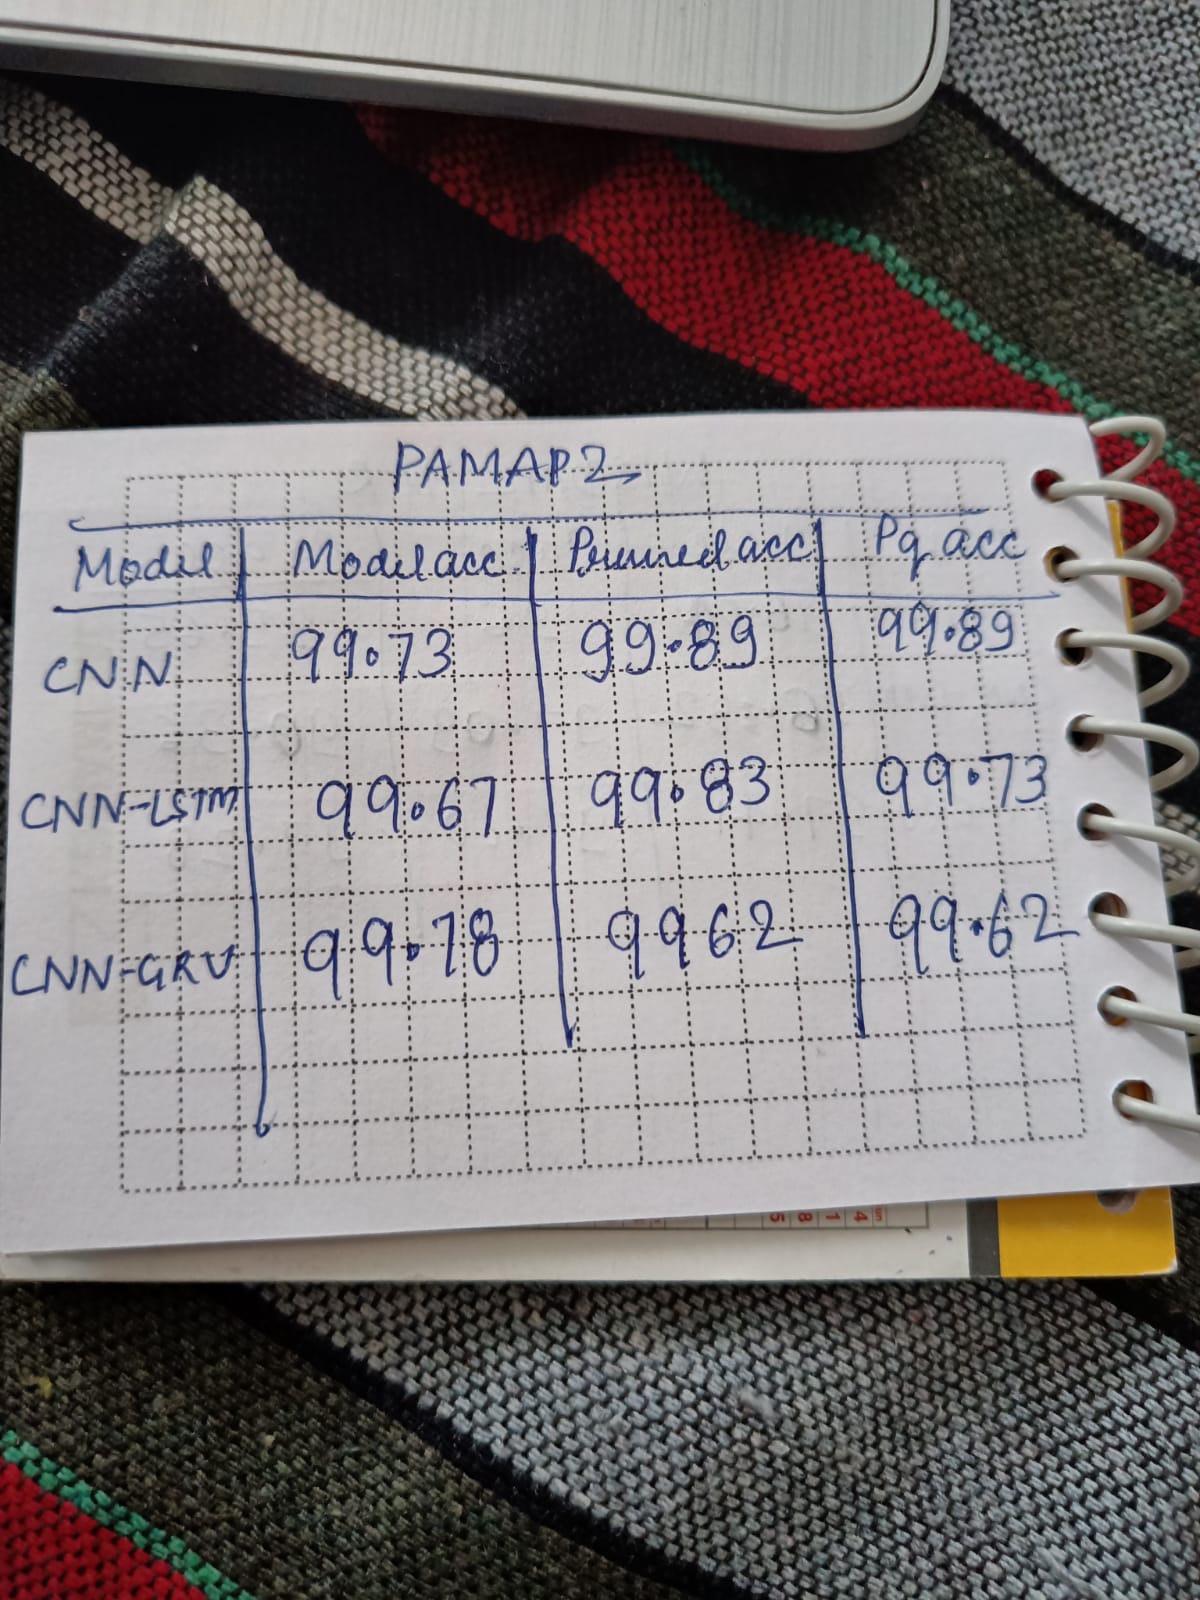 PAMAP2
Model Model acc. Pruned acc Pq acc
CNN 99.73 99.89 99.89
CNN-LSTM 99.67 99.83 99.73
CNN-GRU 99.78 9962 99.62
5 8 1 4